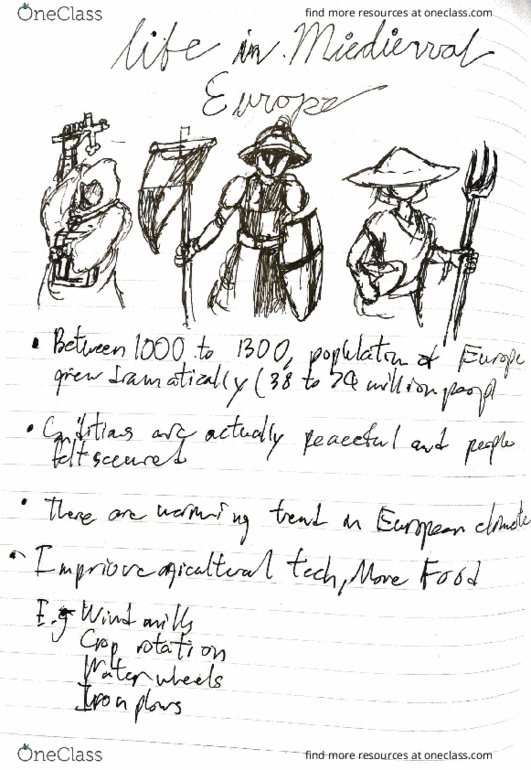 OneClass
find more resources at oneclass.com
life in Miedieval
Europe
• Between 1000 to 1300, population of Europe
grew dramatically (38 to 74 million peopl
• Conditions are actually peaceful and people
felt secured
• There are warming trend in European climate
• Improive agicultural tech, More Food
E.g Wind mills
Crop rotation
Water wheels
Iron plows
OneClass
find more resources at oneclass.com